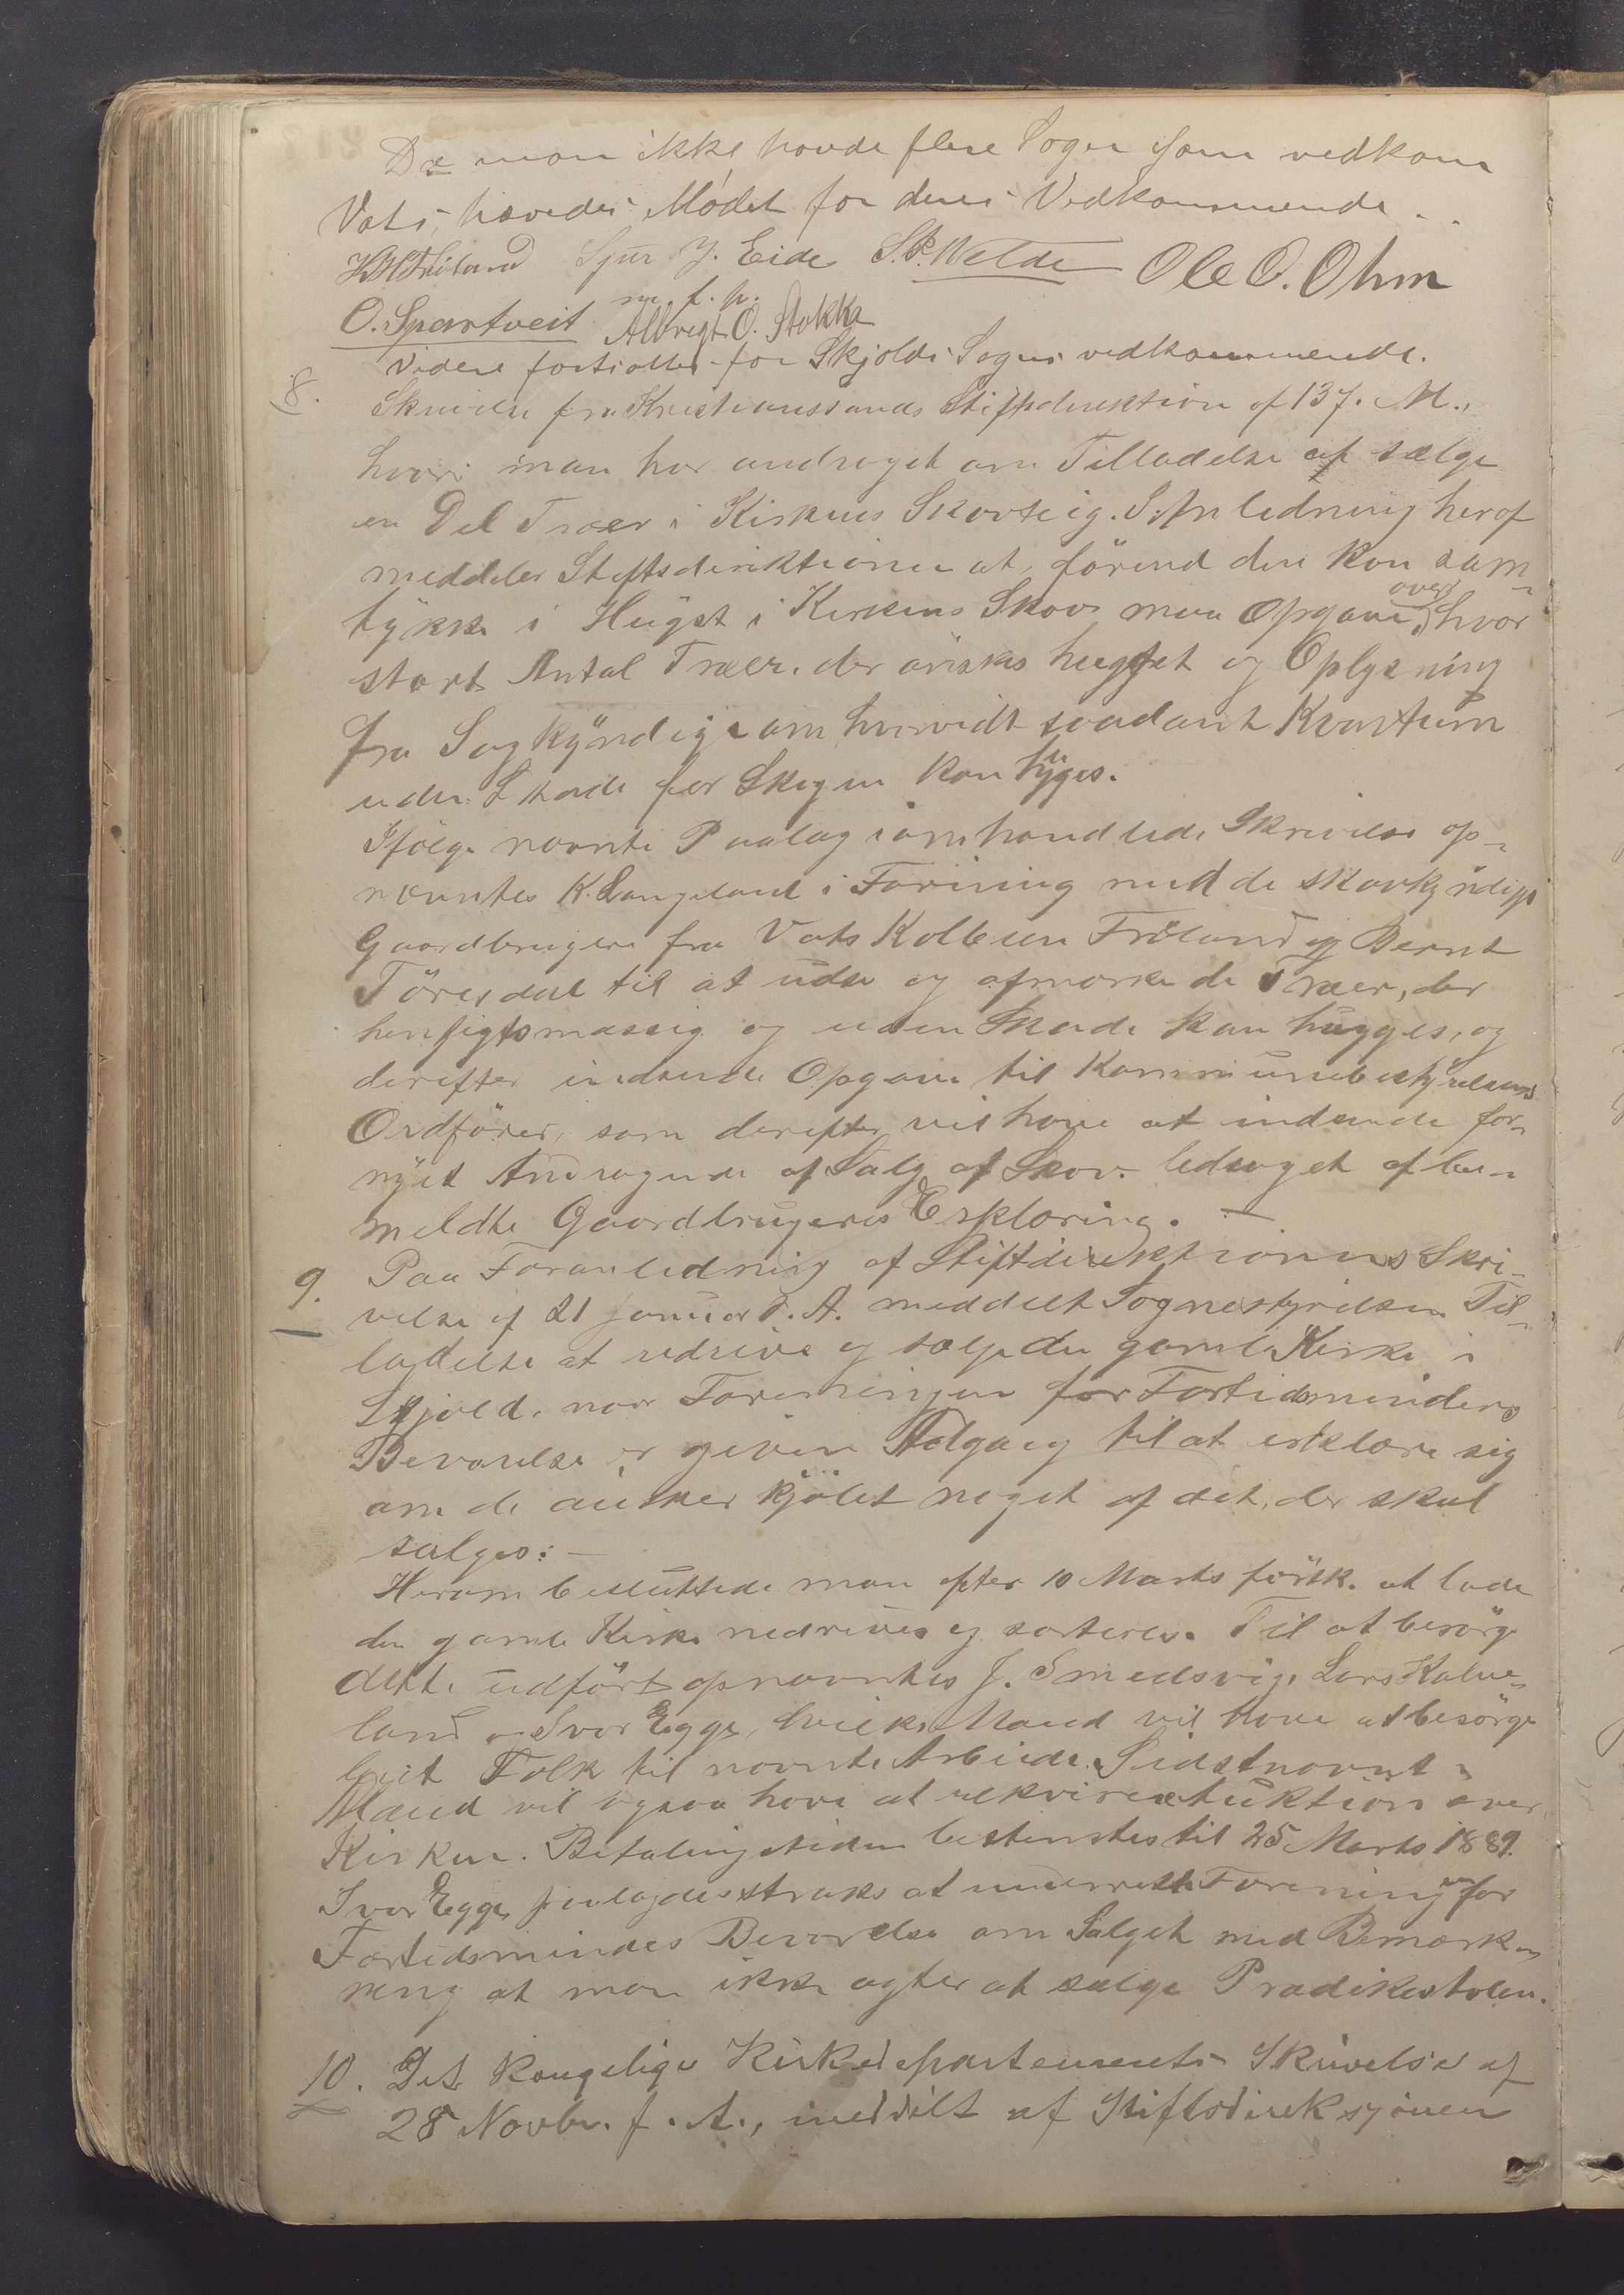 Da man ikke havde flere Sager som vedkom
Vats, hævedes Mødet for deres Vedkommende.
H. H. Frøland Sjur J. Eide S. P. Welde Ole O. Ohm
m. f. p.
O. Spartveit Albregt O. Stokka
Videre fortsattes for Skjolds Sogns vedkommende.
8. Skrivelse fra Kristianssands Stiftsdirektion af 13 f. M.,
hvori man har andraget om Tilladelse at sælge
en Del Træer i Kirkens Skovteig. I Anledning heraf
meddeler Stiftsdirektionen at, förend den kan sam-
tykke i Hugst i Kirkens Skov maa Opgave over hvor
stort Antal Træer der önskes hugget og Oplysning
fra Sagkyndige om hvorvidt saadant Kvantum
uden Skade for Skogen kan hugges.
Ifölge nævnte Paalag i omhandlede Skrivelse op-
nævntes K. Langeland i Forening med de skovkyndige
Gaardbrugere fra Vats Kolbein Fröland og Bernt
Töresdal til at udse og afmærke de Træer, der
hensigtsmæssig og uden Skade kan hugges, og
derefter indsende Opgave til Kommunebestyrelsens
Ordförer, som derefter vil have at indsende for-
nyet Andragende af Salg af Skov ledsaget af be-
meldte Gaardbrugeres Erklæring. —
9. Paa Foranledning af Stiftdirektionens Skri-
velse af 21 Januar d. A. meddelt Sognestyrelsen Til-
ladelse at nedrive og sælge den gamle Kirke i
Skjold, naar Foreningen for Fortidsminders
Bevarelse er given Adgang til at erklære sig
om de önsker kjöbt noget af det, der skal
sælges: —
Herom besluttede man efter 10 Marts förstk. at lade
den gamle Kirke nedrives og sorteres. Til at besörge
dette udfört opnævntes J. Smedsvig, Lars Kalve-
land og Ivar Egge, hvilke Mænd vil have at besörge
leiet Folk til nævnte Arbeide. Sidstnævnte
Mand vil ogsaa have at rekvirere Auktion over
Kirken. Betalingstiden bestemtes til 25 Marts 1889.
Ivar Egge paalagdes straks at underrette Foreningen for
Fortidsmindes Bevarelse om Salget med Bemærk-
ning at man ikke agter at sælge Prædikestolen.
10. Det kongelige Kirkedepartements Skrivelse af
28 Novbr. f. A., meddelt af Stiftsdireksjonen